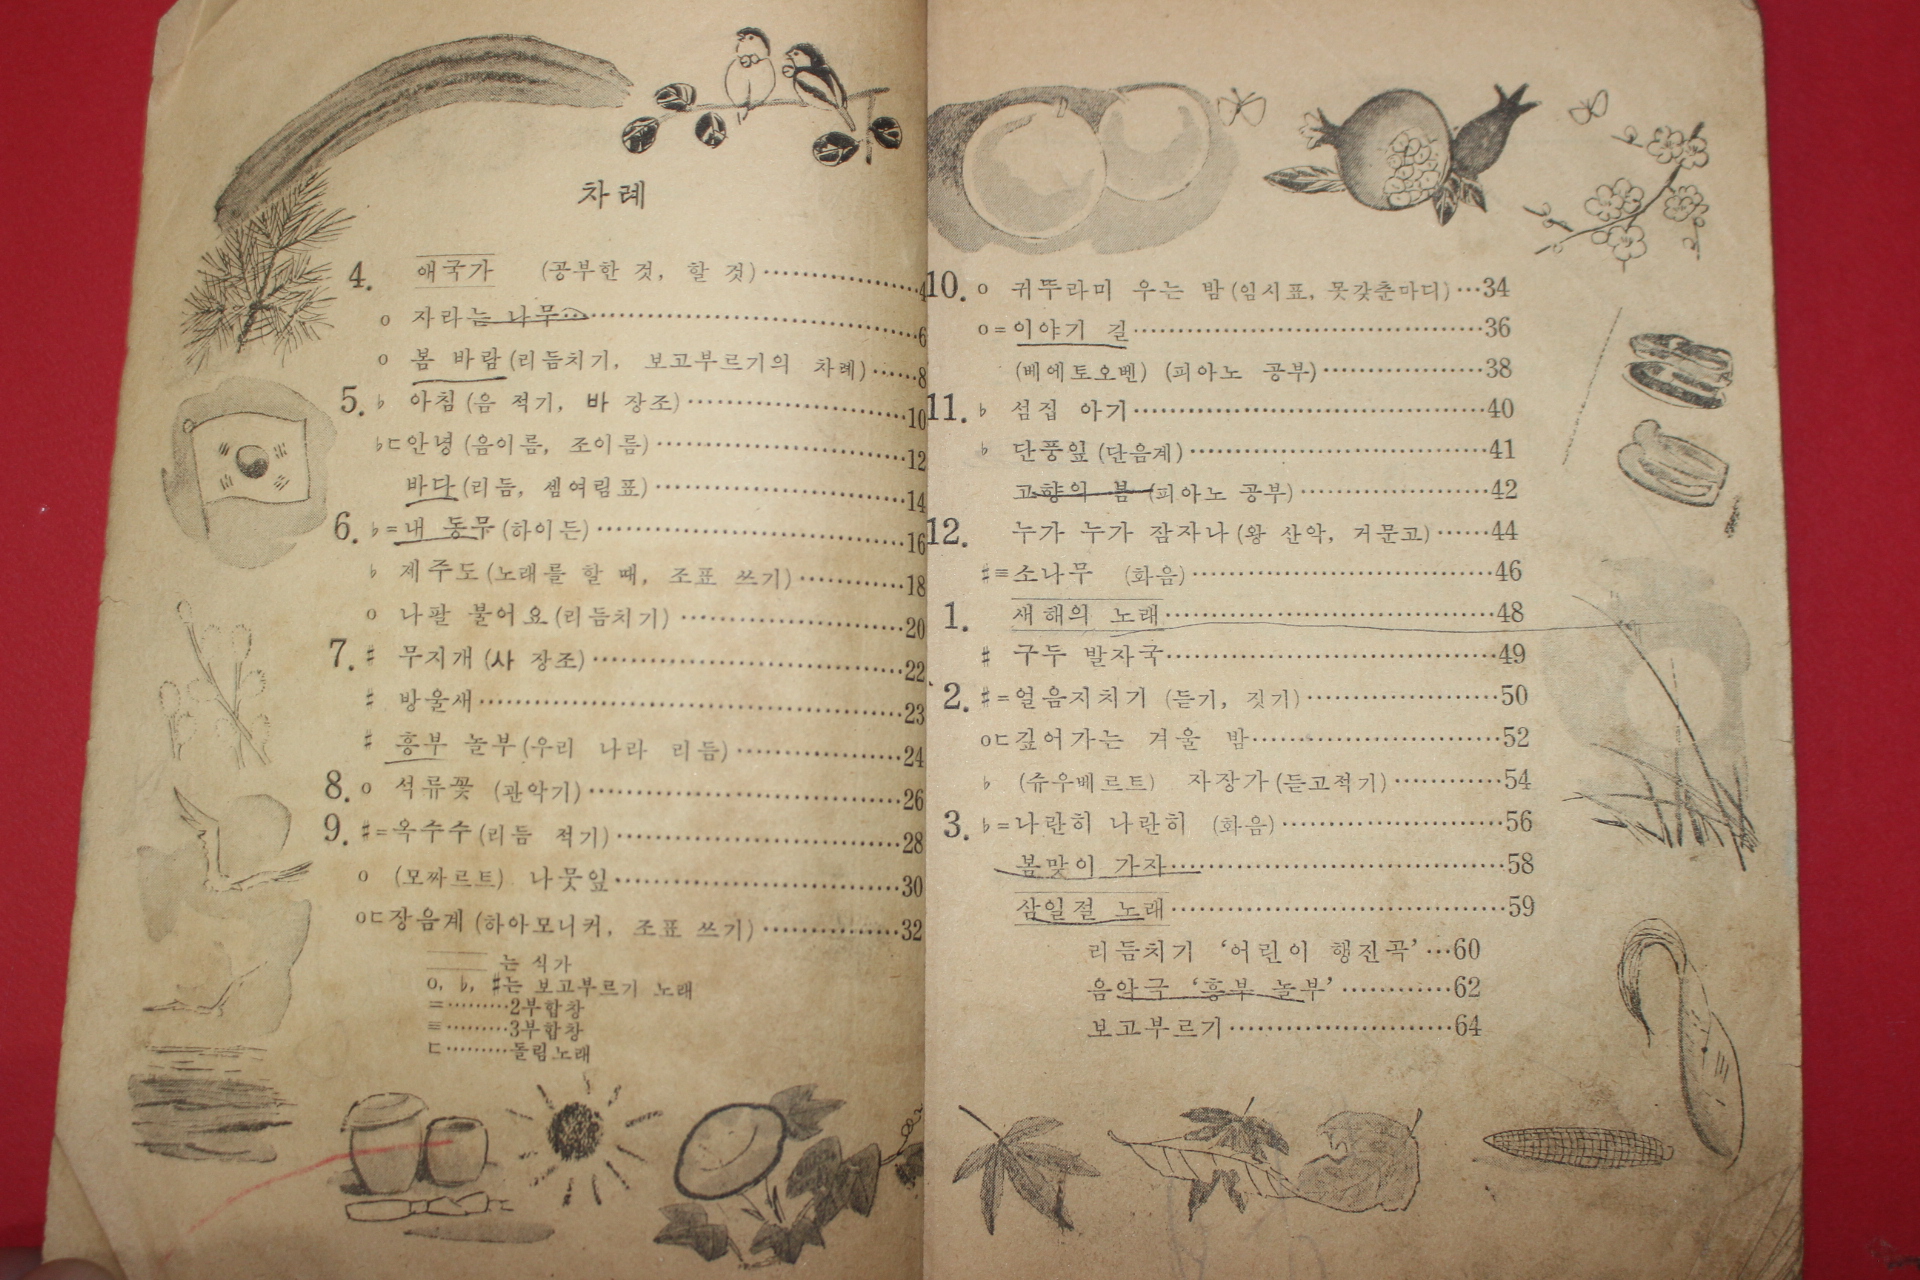 차례
4. 애국가 (공부한 것, 할 것)……………4
o 자라는 나무……………6
o 봄 바람(리듬치기, 보고부르기의 차례)……8
5. ♭ 아침(음 적기, 바 장조)……………10
♭ㄷ안녕(음이름, 조이름)……………12
바다(리듬, 셈여림표)……………14
6. ♭=내 동무(하이든)……………16
♭ 제주도(노래를 할 때, 조표 쓰기)……………18
o 나팔 불어요(리듬치기)……………20
7. ♯ 무지개(사 장조)……………22
♯ 방울새……………23
♯ 흥부 놀부(우리 나라 리듬)……………24
8. o 석류꽃 (관악기)……………26
9. ♯=옥수수(리듬 적기)……………28
o (모짜르트) 나뭇잎……………30
oㄷ장음계(하아모니커, 조표 쓰기)……………32
는 식가
o, ♭, ♯는 보고부르기 노래
=………2부합창
≡………3부합창
ㄷ………돌림노래
10. o 귀뚜라미 우는 밤(임시표, 못갖춘마디)…34
o=이야기 길……………36
(베에토오벤) (피아노 공부)……………38
11. ♭ 섬집 아기……………40
♭ 단풍잎(단음계)……………41
고향의 봄 (피아노 공부)……………42
12. 누가 누가 잠자나(왕 산악, 거문고)……44
♯≡소나무 (화음)……………46
1. 새해의 노래……………48
♯ 구두 발자국……………49
2. ♯=얼음지치기 (듣기, 짓기)……………50
oㄷ깊어가는 겨울 밤……………52
♭ (슈우베르트) 자장가(듣고적기)…………54
3. ♭=나란히 나란히 (화음)……………56
봄맞이 가자……………58
삼일절 노래……………59
리듬치기 ‘어린이 행진곡’…60
음악극 ‘흥부 놀부’…………62
보고부르기……………64